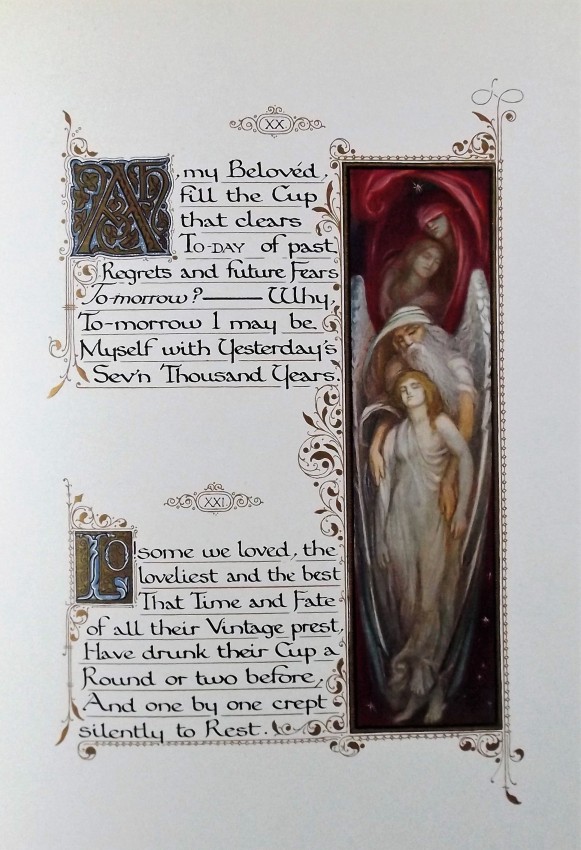 XX
AH, my Belovéd,
fill the Cup
that clears
TO-DAY of past
Regrets and future Fears
To-morrow? — Why,
To-morrow I may be
Myself with Yesterday's
Sev'n Thousand Years.
XXI
LO! some we loved, the
loveliest and the best
That Time and Fate
of all their Vintage prest,
Have drunk their Cup a
Round or two before,
And one by one crept
silently to Rest.